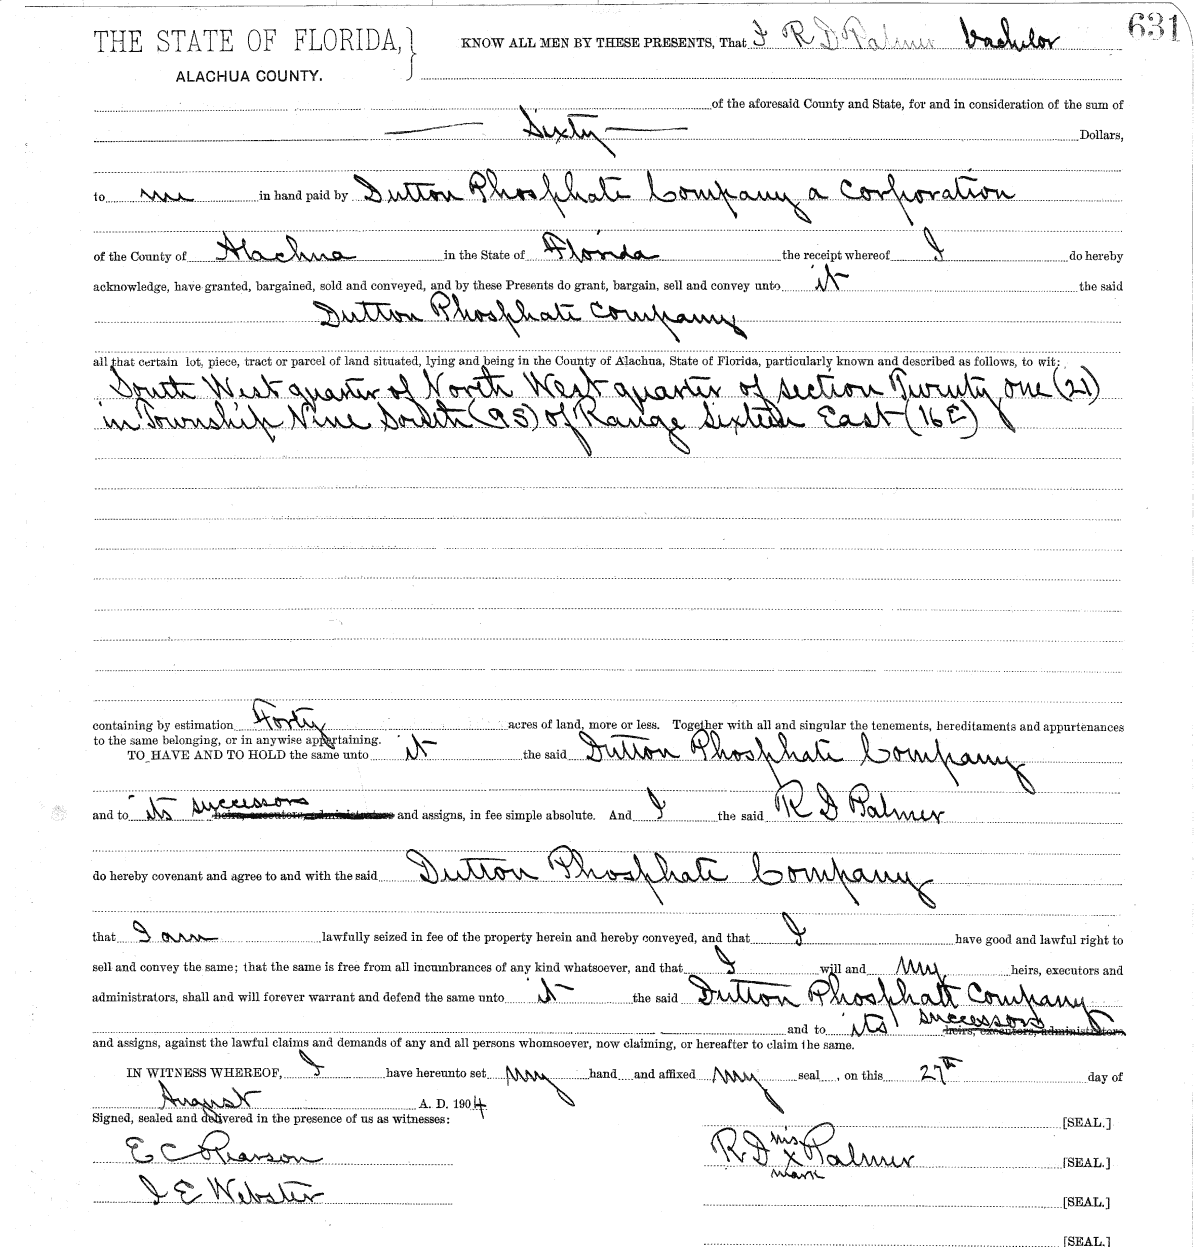 631
THE STATE OF FLORIDA, } KNOW ALL MEN BY THESE PRESENTS, That I R D Palmer bachelor
ALACHUA COUNTY.
of the aforesaid County and State, for and in consideration of the sum of
Sixty Dollars,
to me in hand paid by Dutton Phosphate Company a Corporation
of the County of Alachua in the State of Florida the receipt whereof I do hereby
acknowledge, have granted, bargained, sold and conveyed, and by these Presents do grant, bargain, sell and convey unto it the said
Dutton Phosphate Company
all that certain lot, piece, tract or parcel of land situated, lying and being in the County of Alachua, State of Florida, particularly known and described as follows, to wit:
South West quarter of North West quarter of section Twenty one (21)
in Township Nine South (9S) of Range Sixteen East (16E)
containing by estimation Forty acres of land, more or less. Together with all and singular the tenements, hereditaments and appurtenances
to the same belonging, or in anywise appertaining.
TO HAVE AND TO HOLD the same unto it the said Dutton Phosphate Company
and to its successors heirs, executors, administrators and assigns, in fee simple absolute. And I the said R D Palmer
do hereby covenant and agree to and with the said Dutton Phosphate Company
that I am lawfully seized in fee of the property herein and hereby conveyed, and that I have good and lawful right to
sell and convey the same; that the same is free from all incumbrances of any kind whatsoever, and that I will and my heirs, executors and
administrators, shall and will forever warrant and defend the same unto it the said Dutton Phosphate Company
and to its successors heirs, executors, administrators
and assigns, against the lawful claims and demands of any and all persons whomsoever, now claiming, or hereafter to claim the same.
IN WITNESS WHEREOF, I have hereunto set my hand and affixed my seal, on this 27th day of
August A. D. 1904
Signed, sealed and delivered in the presence of us as witnesses:
[SEAL.]
E C Pearson R D his x mark Palmer [SEAL.]
J E Webster [SEAL.]
[SEAL.]